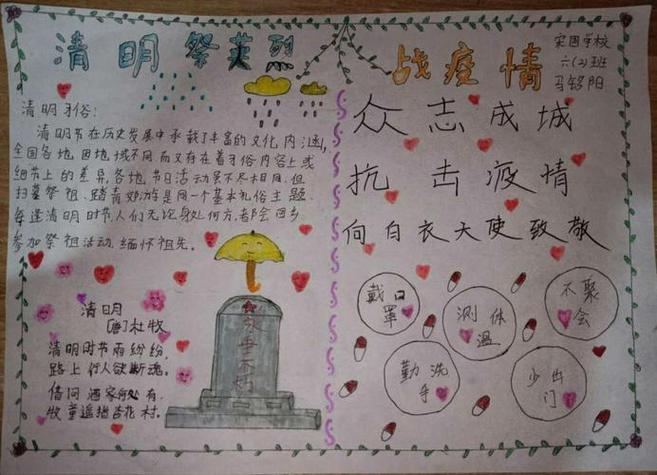 清明祭英烈
清明习俗:
清明节在历史发展中承载了丰富的文化内涵,
全国各地因地域不同而又存在着习俗内容上或
细节上的差异,各地节日活动虽不尽相同,但
扫墓祭祖、踏青郊游是同一个基本礼俗主题.
每逢清明时节,人们无论身处何方,都会回乡
参加祭祖活动,缅怀祖先。
清明
[唐]杜牧
清明时节雨纷纷,
路上行人欲断魂,
借问酒家何处有,
牧童遥指杏花村.
永垂不朽
战疫情
宋固学校
六(2)班
马铭阳
众志成城
抗击疫情
向白衣天使致敬
戴口
罩
测体
温
不聚
会
勤洗
手
少出
门